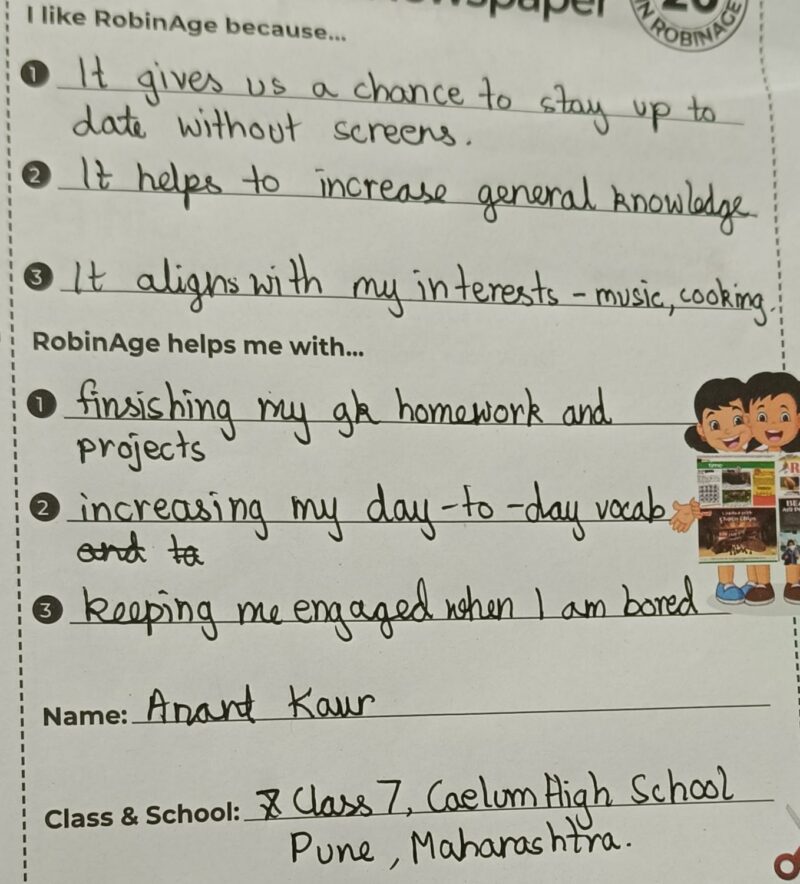 I like RobinAge because...
IN ROBINAGE
1 It gives us a chance to stay up to
date without screens.
2 It helps to increase general knowledge
3 It aligns with my interests - music, cooking.
RobinAge helps me with...
1 finsishing my gk homework and
projects
2 increasing my day-to-day vocab
and to
3 keeping me engaged when I am bored
Name: Anant Kaur
Class & School: Class 7, Caelum High School
Pune, Maharashtra.